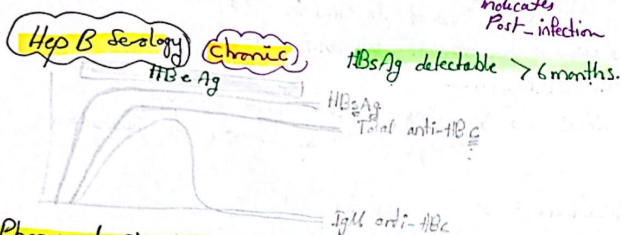 indicates
Post-infection
Hep B Serology Chronic,
HBsAg detectable > 6 months.
HBeAg
HBsAg
Total anti-HBc
IgM anti-HBc